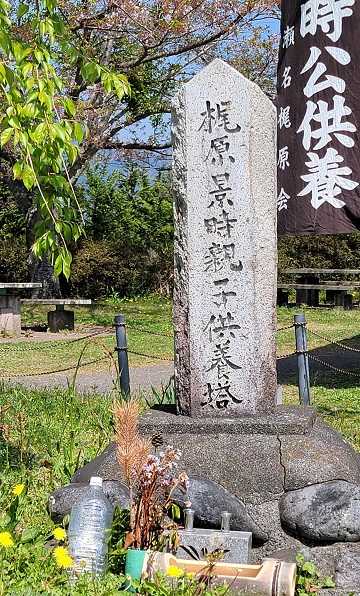 梶原景時親子供養塔
時公供養
瀬名梶原会